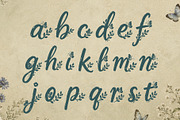 a b c d e f
g h i k l m n
j o p q r s t